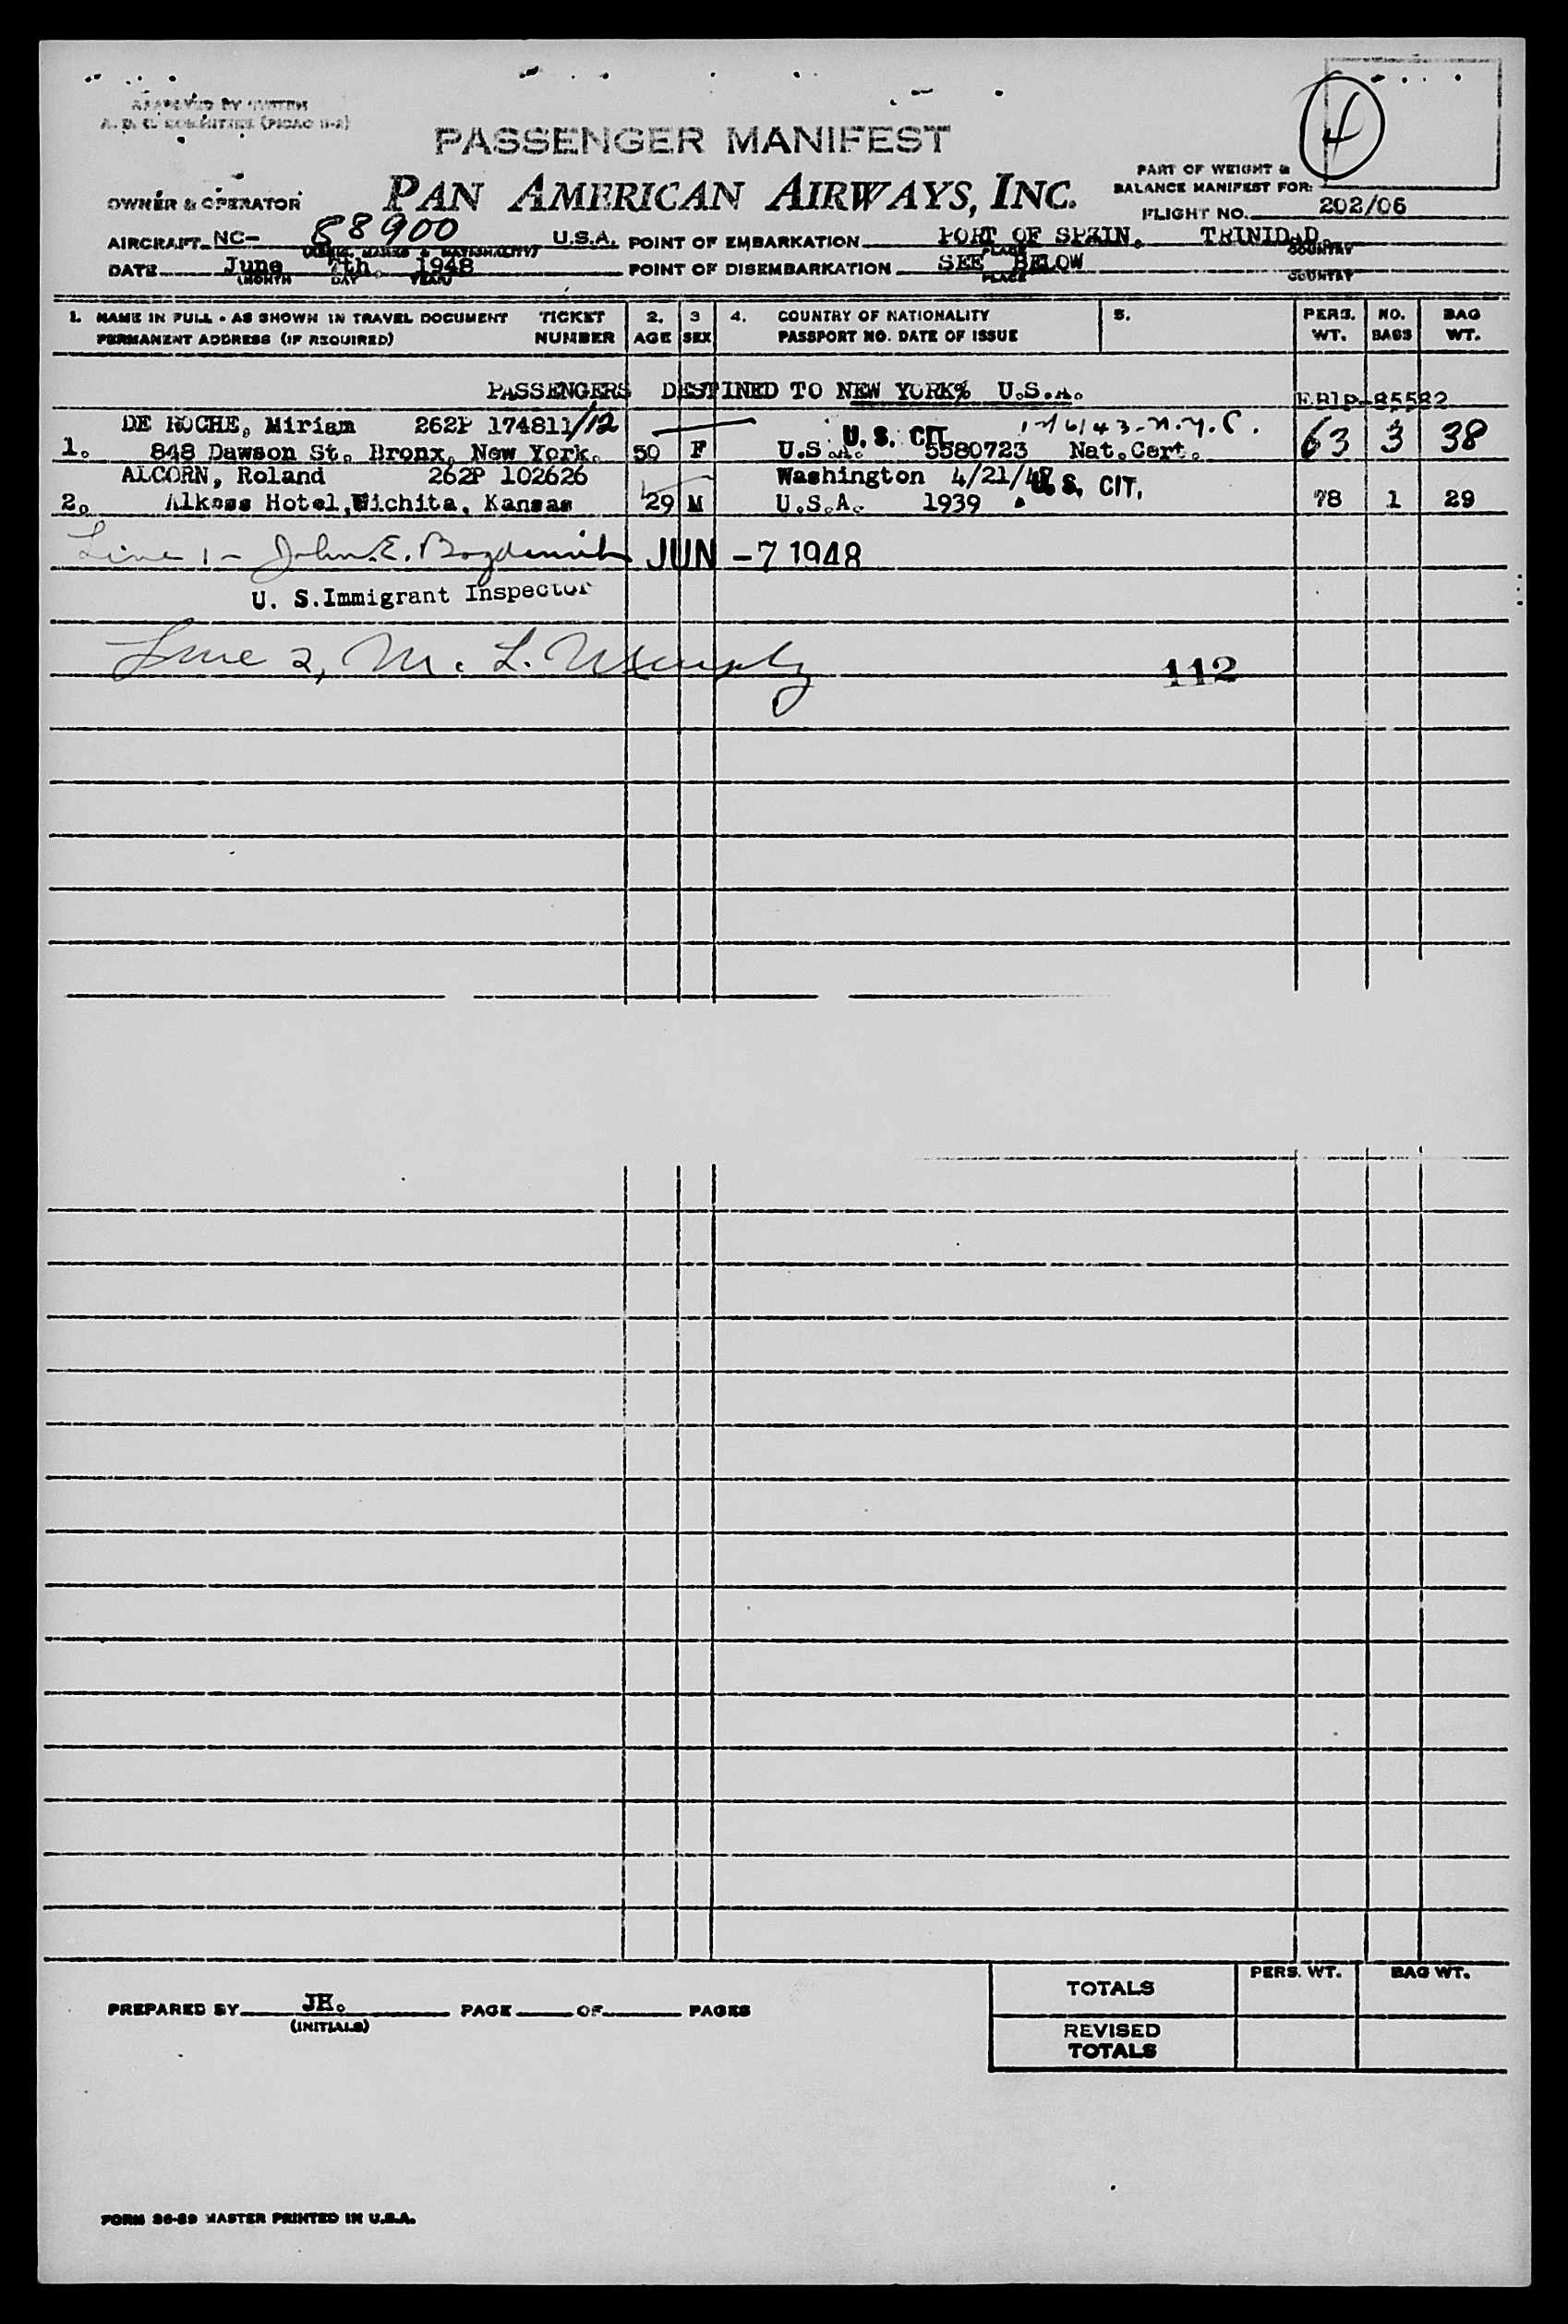 APPROVED BY
A. D. C. COMMITTEE (PICAO II-2)
4
PASSENGER MANIFEST
PART OF WEIGHT &
BALANCE MANIFEST FOR:
OWNER & OPERATOR PAN AMERICAN AIRWAYS, INC.
FLIGHT NO. 202/06
AIRCRAFT NC- 88900 U.S.A. POINT OF EMBARKATION PORT OF SPAIN, TRINIDAD.
(MARKS & NATIONALITY) PLACE COUNTRY
DATE June 7th. 1948 POINT OF DISEMBARKATION SEE BELOW
(MONTH DAY YEAR) PLACE COUNTRY
1. NAME IN FULL - AS SHOWN IN TRAVEL DOCUMENT TICKET 2. 3 4. COUNTRY OF NATIONALITY 5. PERS. NO. BAG
PERMANENT ADDRESS (IF REQUIRED) NUMBER AGE SEX PASSPORT NO. DATE OF ISSUE WT. BAGS WT.
PASSENGERS DESTINED TO NEW YORK% U.S.A.
85582
DE ROCHE, Miriam 262P 174811/12 U. S. CIT N.Y.C.
1. 848 Dawson St. Bronx, New York. 50 F U.S.A. 5580723 Nat.Cert. 63 3 38
ALCORN, Roland 262P 102626 Washington 4/21/48 U. S. CIT.
2. Alkoss Hotel,Wichita, Kansas 29 M U.S.A. 1939 78 1 29
Line 1 - John E. JUN -7 1948
U. S.Immigrant Inspector
Line 2, M. L. Murphy
112
PREPARED BY JH. PAGE OF PAGES
(INITIALS)
PERS. WT. BAG WT.
TOTALS
REVISED
TOTALS
FORM 36-89 MASTER PRINTED IN U.S.A.